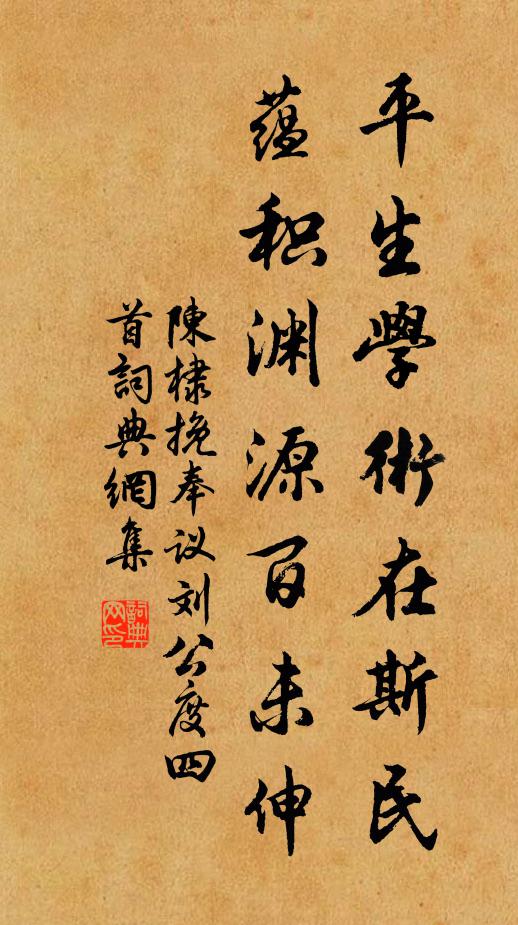 平生學術在斯民
蕴积渊源百未伸
陳棣挽奉议刘公度四
首詞典網集
詞典
网印